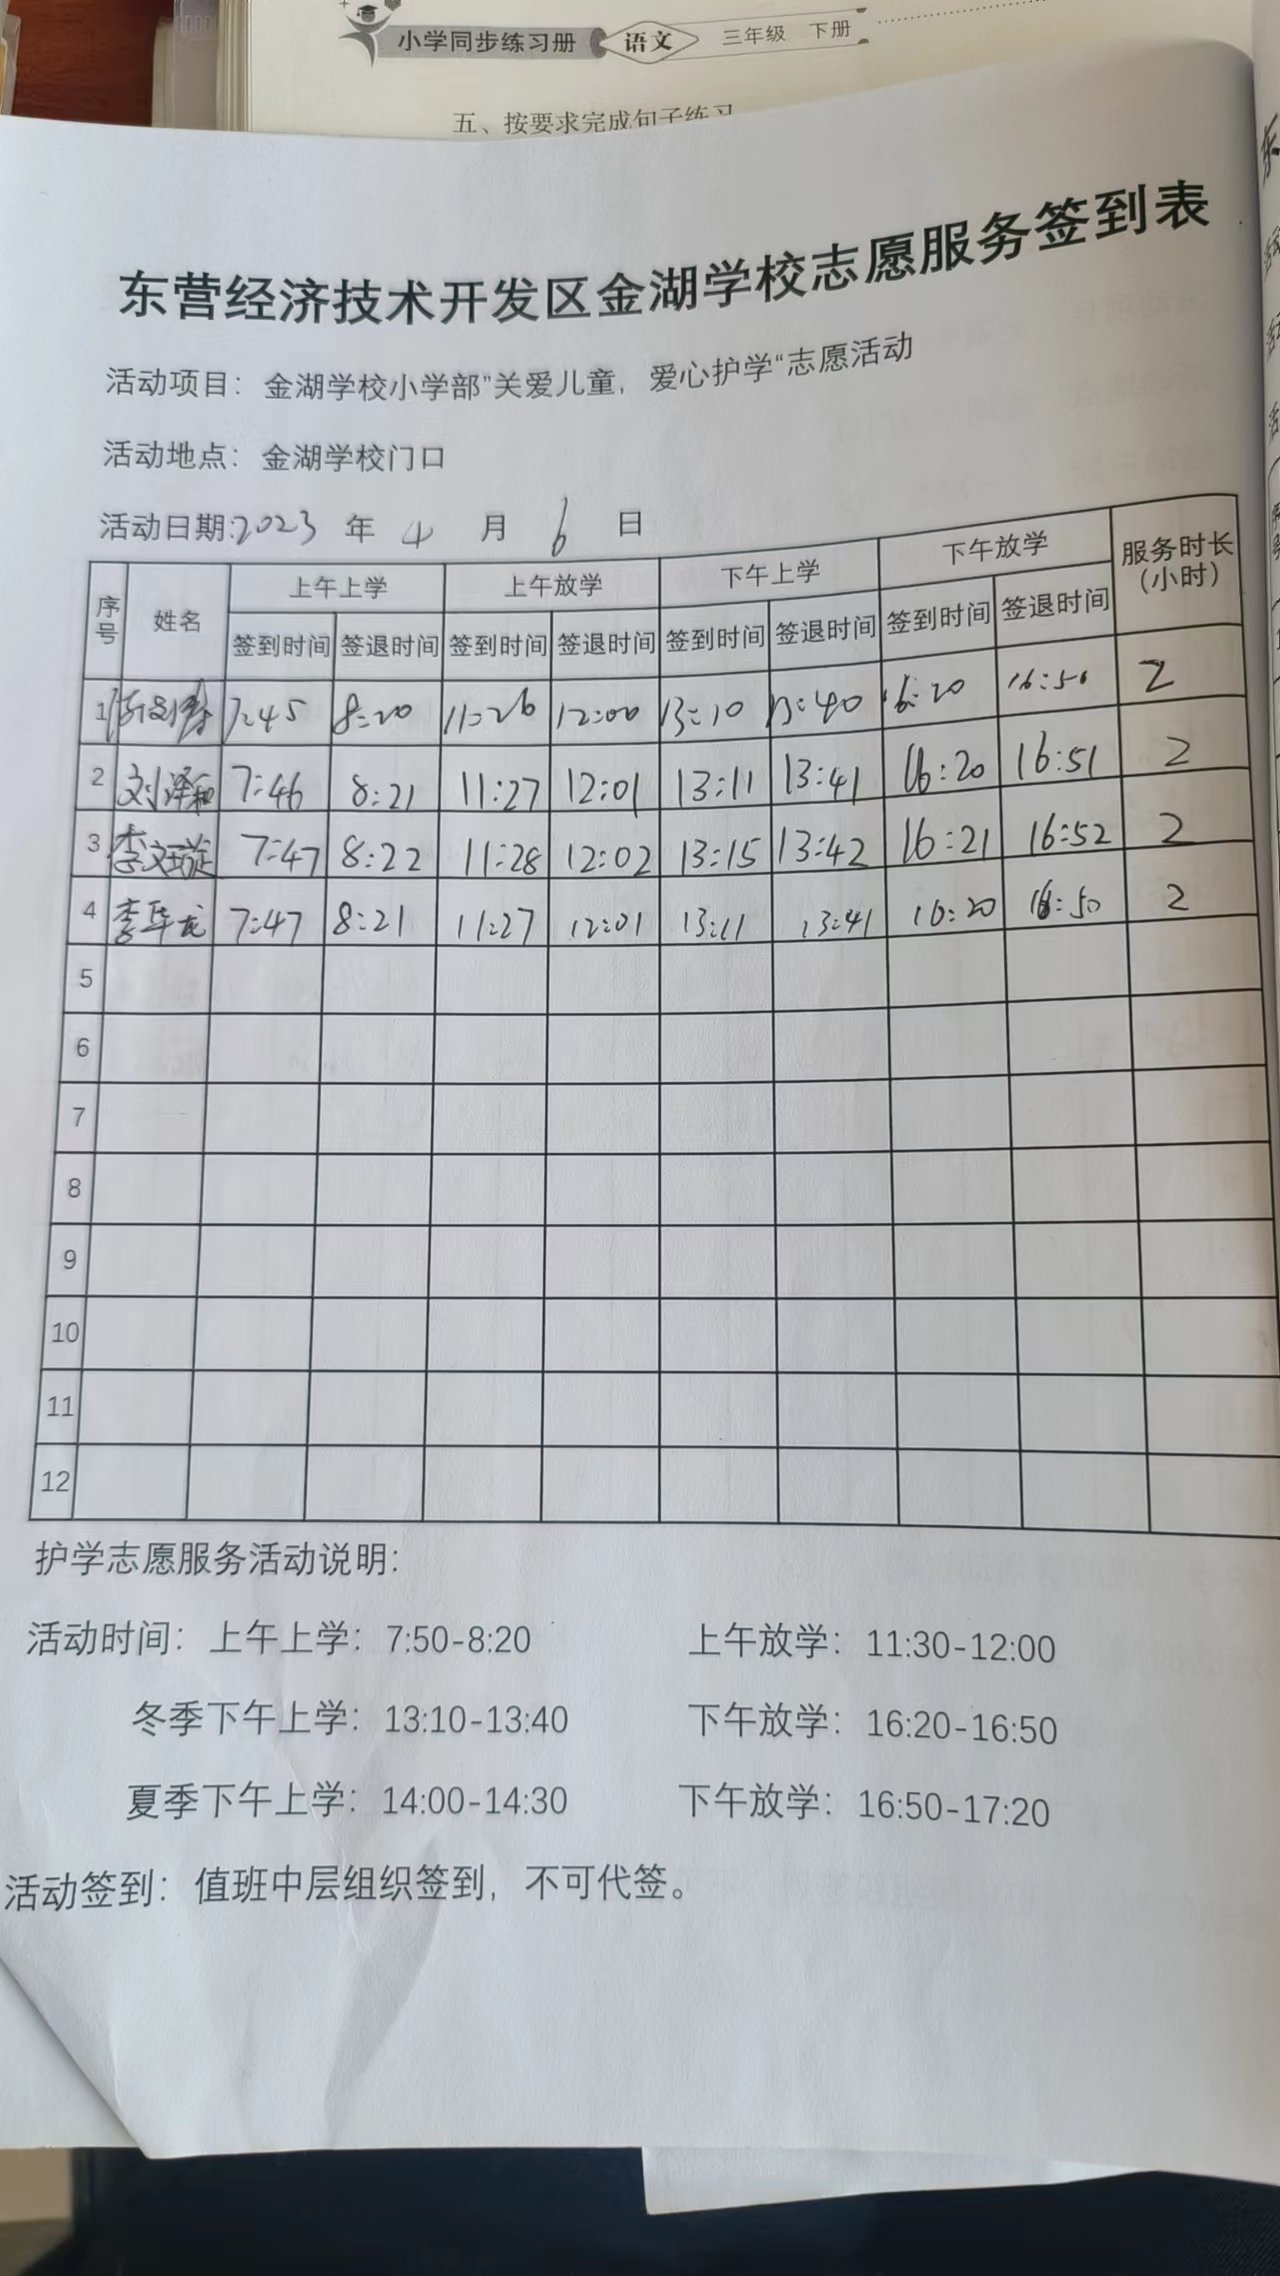 小学同步练习册 语文 三年级 下册
五、按要求完成句子练习
东营经济技术开发区金湖学校志愿服务签到表
活动项目：金湖学校小学部”关爱儿童，爱心护学“志愿活动
活动地点：金湖学校门口
活动日期:2023 年 4 月 6 日
序号 姓名 上午上学 上午放学 下午上学 下午放学 服务时长（小时）
签到时间 签退时间 签到时间 签退时间 签到时间 签退时间 签到时间 签退时间
1 7:45 8:20 11:26 12:00 13:10 13:40 16:20 16:50 2
2 刘泽和 7:46 8:21 11:27 12:01 13:11 13:41 16:20 16:51 2
3 李文璇 7:47 8:22 11:28 12:02 13:15 13:42 16:21 16:52 2
4 李华龙 7:47 8:21 11:27 12:01 13:11 13:41 16:20 16:50 2
5
6
7
8
9
10
11
12
护学志愿服务活动说明：
活动时间：上午上学：7:50-8:20 上午放学：11:30-12:00
冬季下午上学：13:10-13:40 下午放学：16:20-16:50
夏季下午上学：14:00-14:30 下午放学：16:50-17:20
活动签到：值班中层组织签到，不可代签。